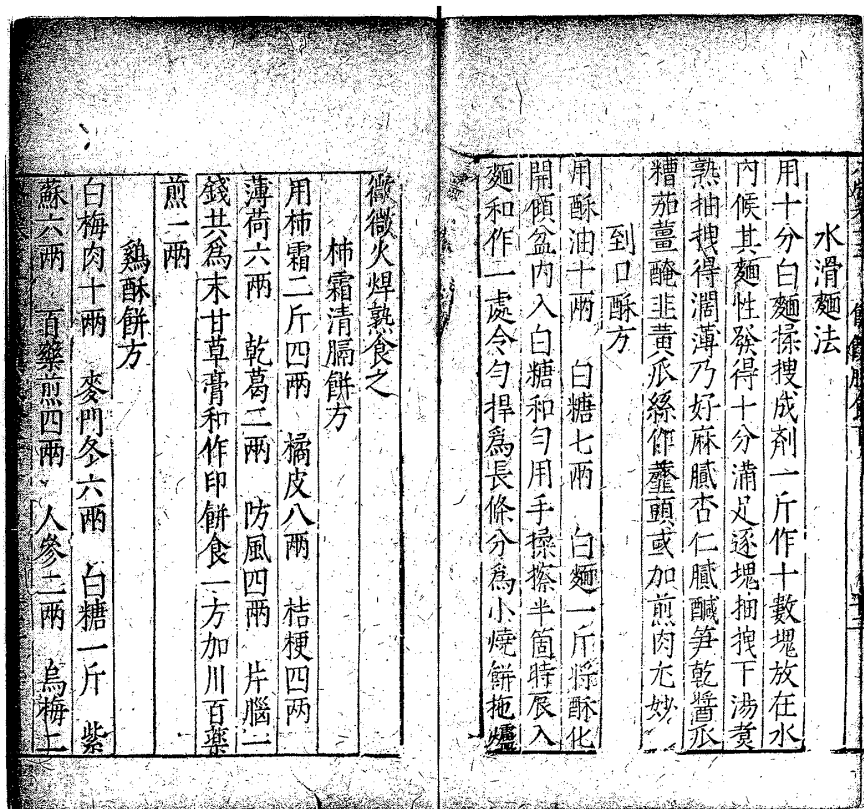 水滑麵法
用十分白麵揉搜成劑一斤作十數塊放在水
內候其麵性發得十分滿足逐塊抽拽下湯煑
熟抽拽得濶薄乃好麻膩杏仁膩醎笋乾醬瓜
糟茄薑醃韭黃瓜絲作虀頭或加煎肉尤妙
到口酥方
用酥油十兩 白糖七兩 白麵一斤將酥化
開傾盆內入白糖和勻用手揉擦半箇時辰入
麵和作一處令勻捍爲長條分爲小燒餅拖爐
微微火焊熟食之
柿霜清膈餅方
用柿霜二斤四兩 橘皮八兩 桔梗四兩
薄荷六兩 乾葛二兩 防風四兩 片腦一
錢共爲末甘草膏和作印餅食一方加川百藥
煎一兩
鷄酥餅方
白梅肉十兩 麥門冬六兩 白糖一斤 紫
蘇六兩 百藥煎四兩 人參二兩 烏梅二